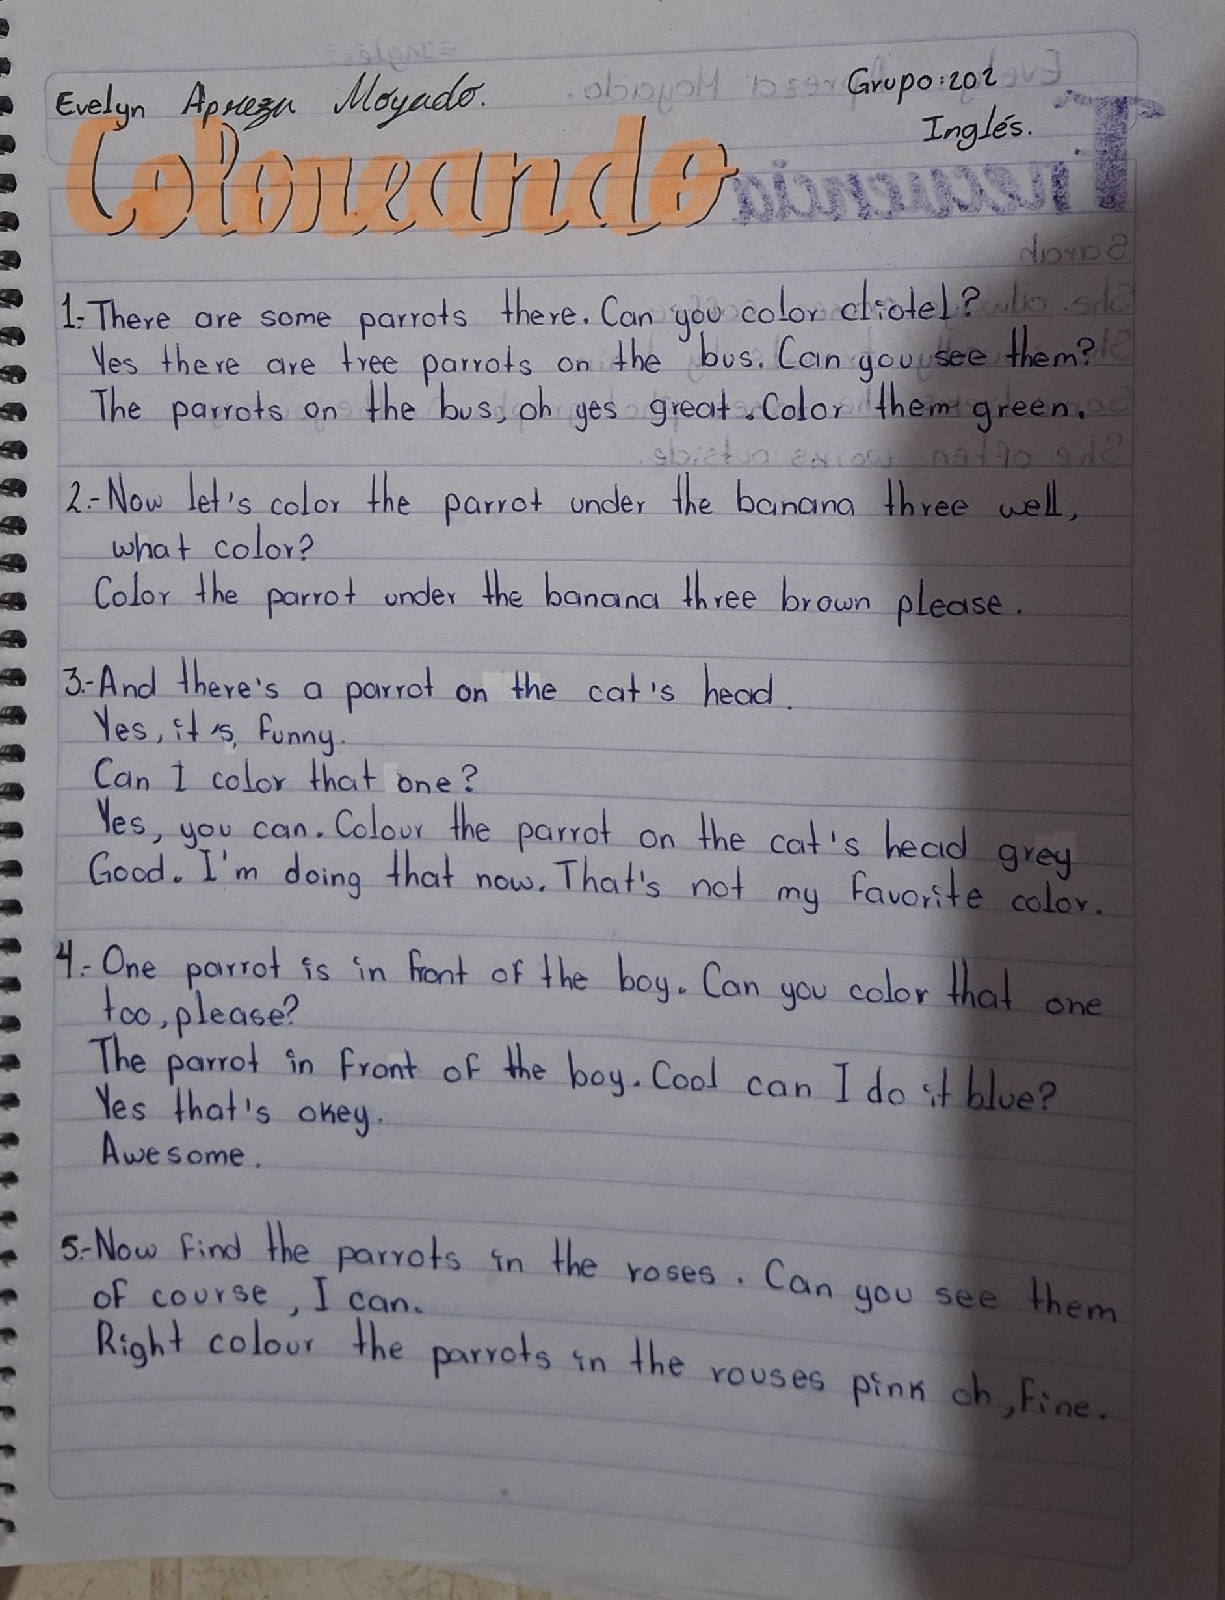 Evelyn Apreza Moyado.
Grupo:202
Inglés.
Coloreando
1.- There are some parrots there. Can you color diotel?
Yes there are tree parrots on the bus. Can you see them?
The parrots on the bus, oh yes great. Color them green.
2.- Now let's color the parrot under the banana three well,
what color?
Color the parrot under the banana three brown please.
3.- And there's a parrot on the cat's head.
Yes, it's, funny.
Can I color that one?
Yes, you can. Colour the parrot on the cat's head grey
Good. I'm doing that now. That's not my favorite color.
4.- One parrot is in front of the boy. Can you color that one
too, please?
The parrot in front of the boy. Cool can I do it blue?
Yes that's okey.
Awesome.
5.- Now find the parrots in the roses. Can you see them
of course, I can.
Right colour the parrots in the rouses pink oh, fine.